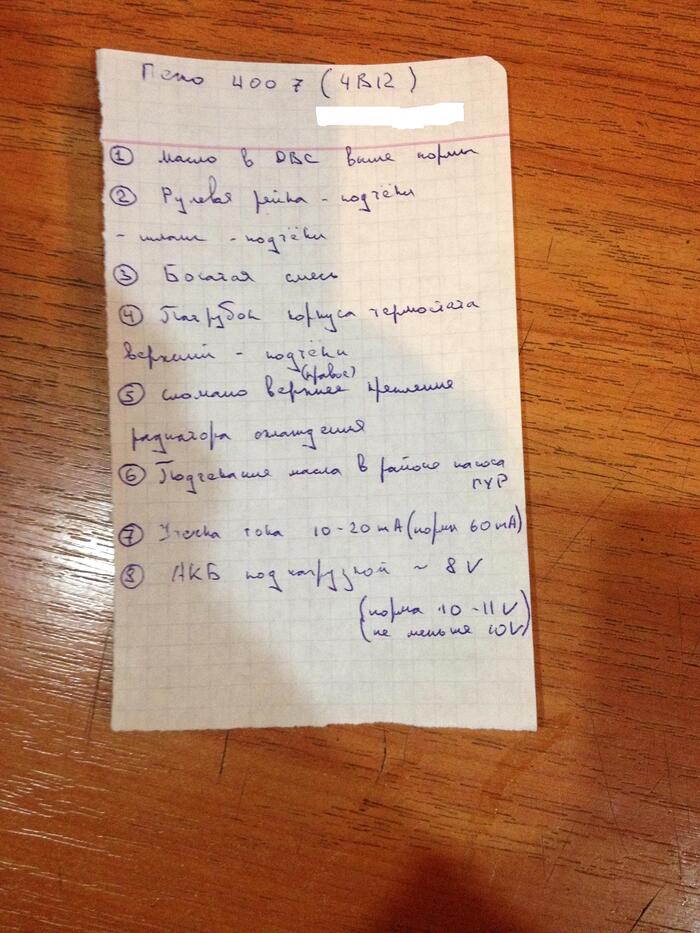 Пежо 4007 (4B12)
① масло в ДВС выше нормы
② Рулевая рейка - подтёки
- шланг - подтёки
③ Богатая смесь
④ Патрубок корпуса термостата
верхний - подтёки
(правое)
⑤ сломано верхнее крепление
радиатора охлаждения
⑥ Подтекание масла в районе насоса
ГУР
⑦ Утечка тока 10-20 mA (норма 60 mA)
⑧ АКБ под нагрузкой ~ 8 V
(норма 10-11 V
(не меньше 10V)